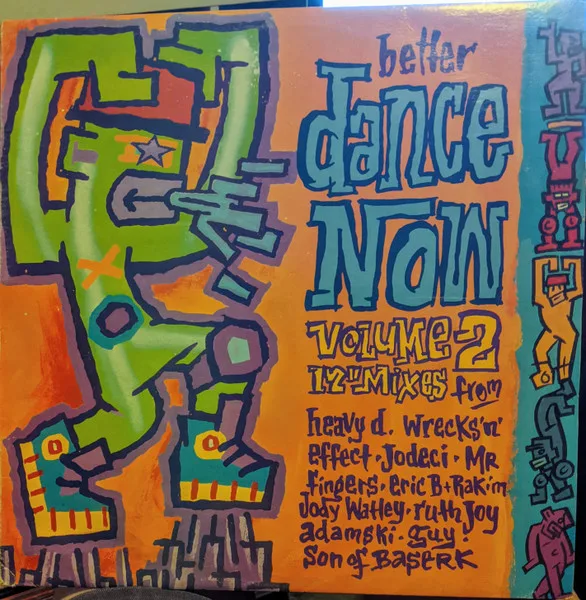 better
dance
Now
VOLUME 2
12" MIXES from
heavy d. wrecks 'n'
effect · Jodeci · MR
fingers · eric B + Rakim
Jody Watley · ruth Joy
adamski · guy ·
Son of BaSeRK